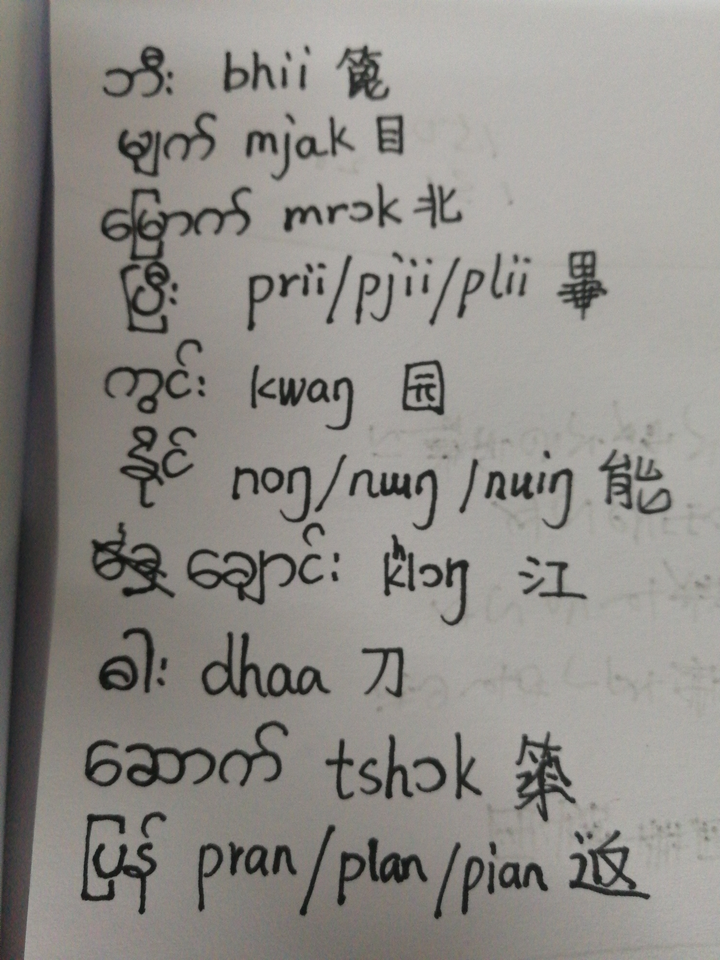 ဘီး bhii 篦
မျက် mjak 目
မြောက် mrɔk 北
ပြီး prii/pjii/plii 畢
ကွင်း kwaŋ 园
နိုင် noŋ/nɯŋ/nuiŋ 能
ချောင်း kʰlɔŋ 江
ဓါး dhaa 刀
ဆောက် tshɔk 築
ပြန် pran/plan/pian 返